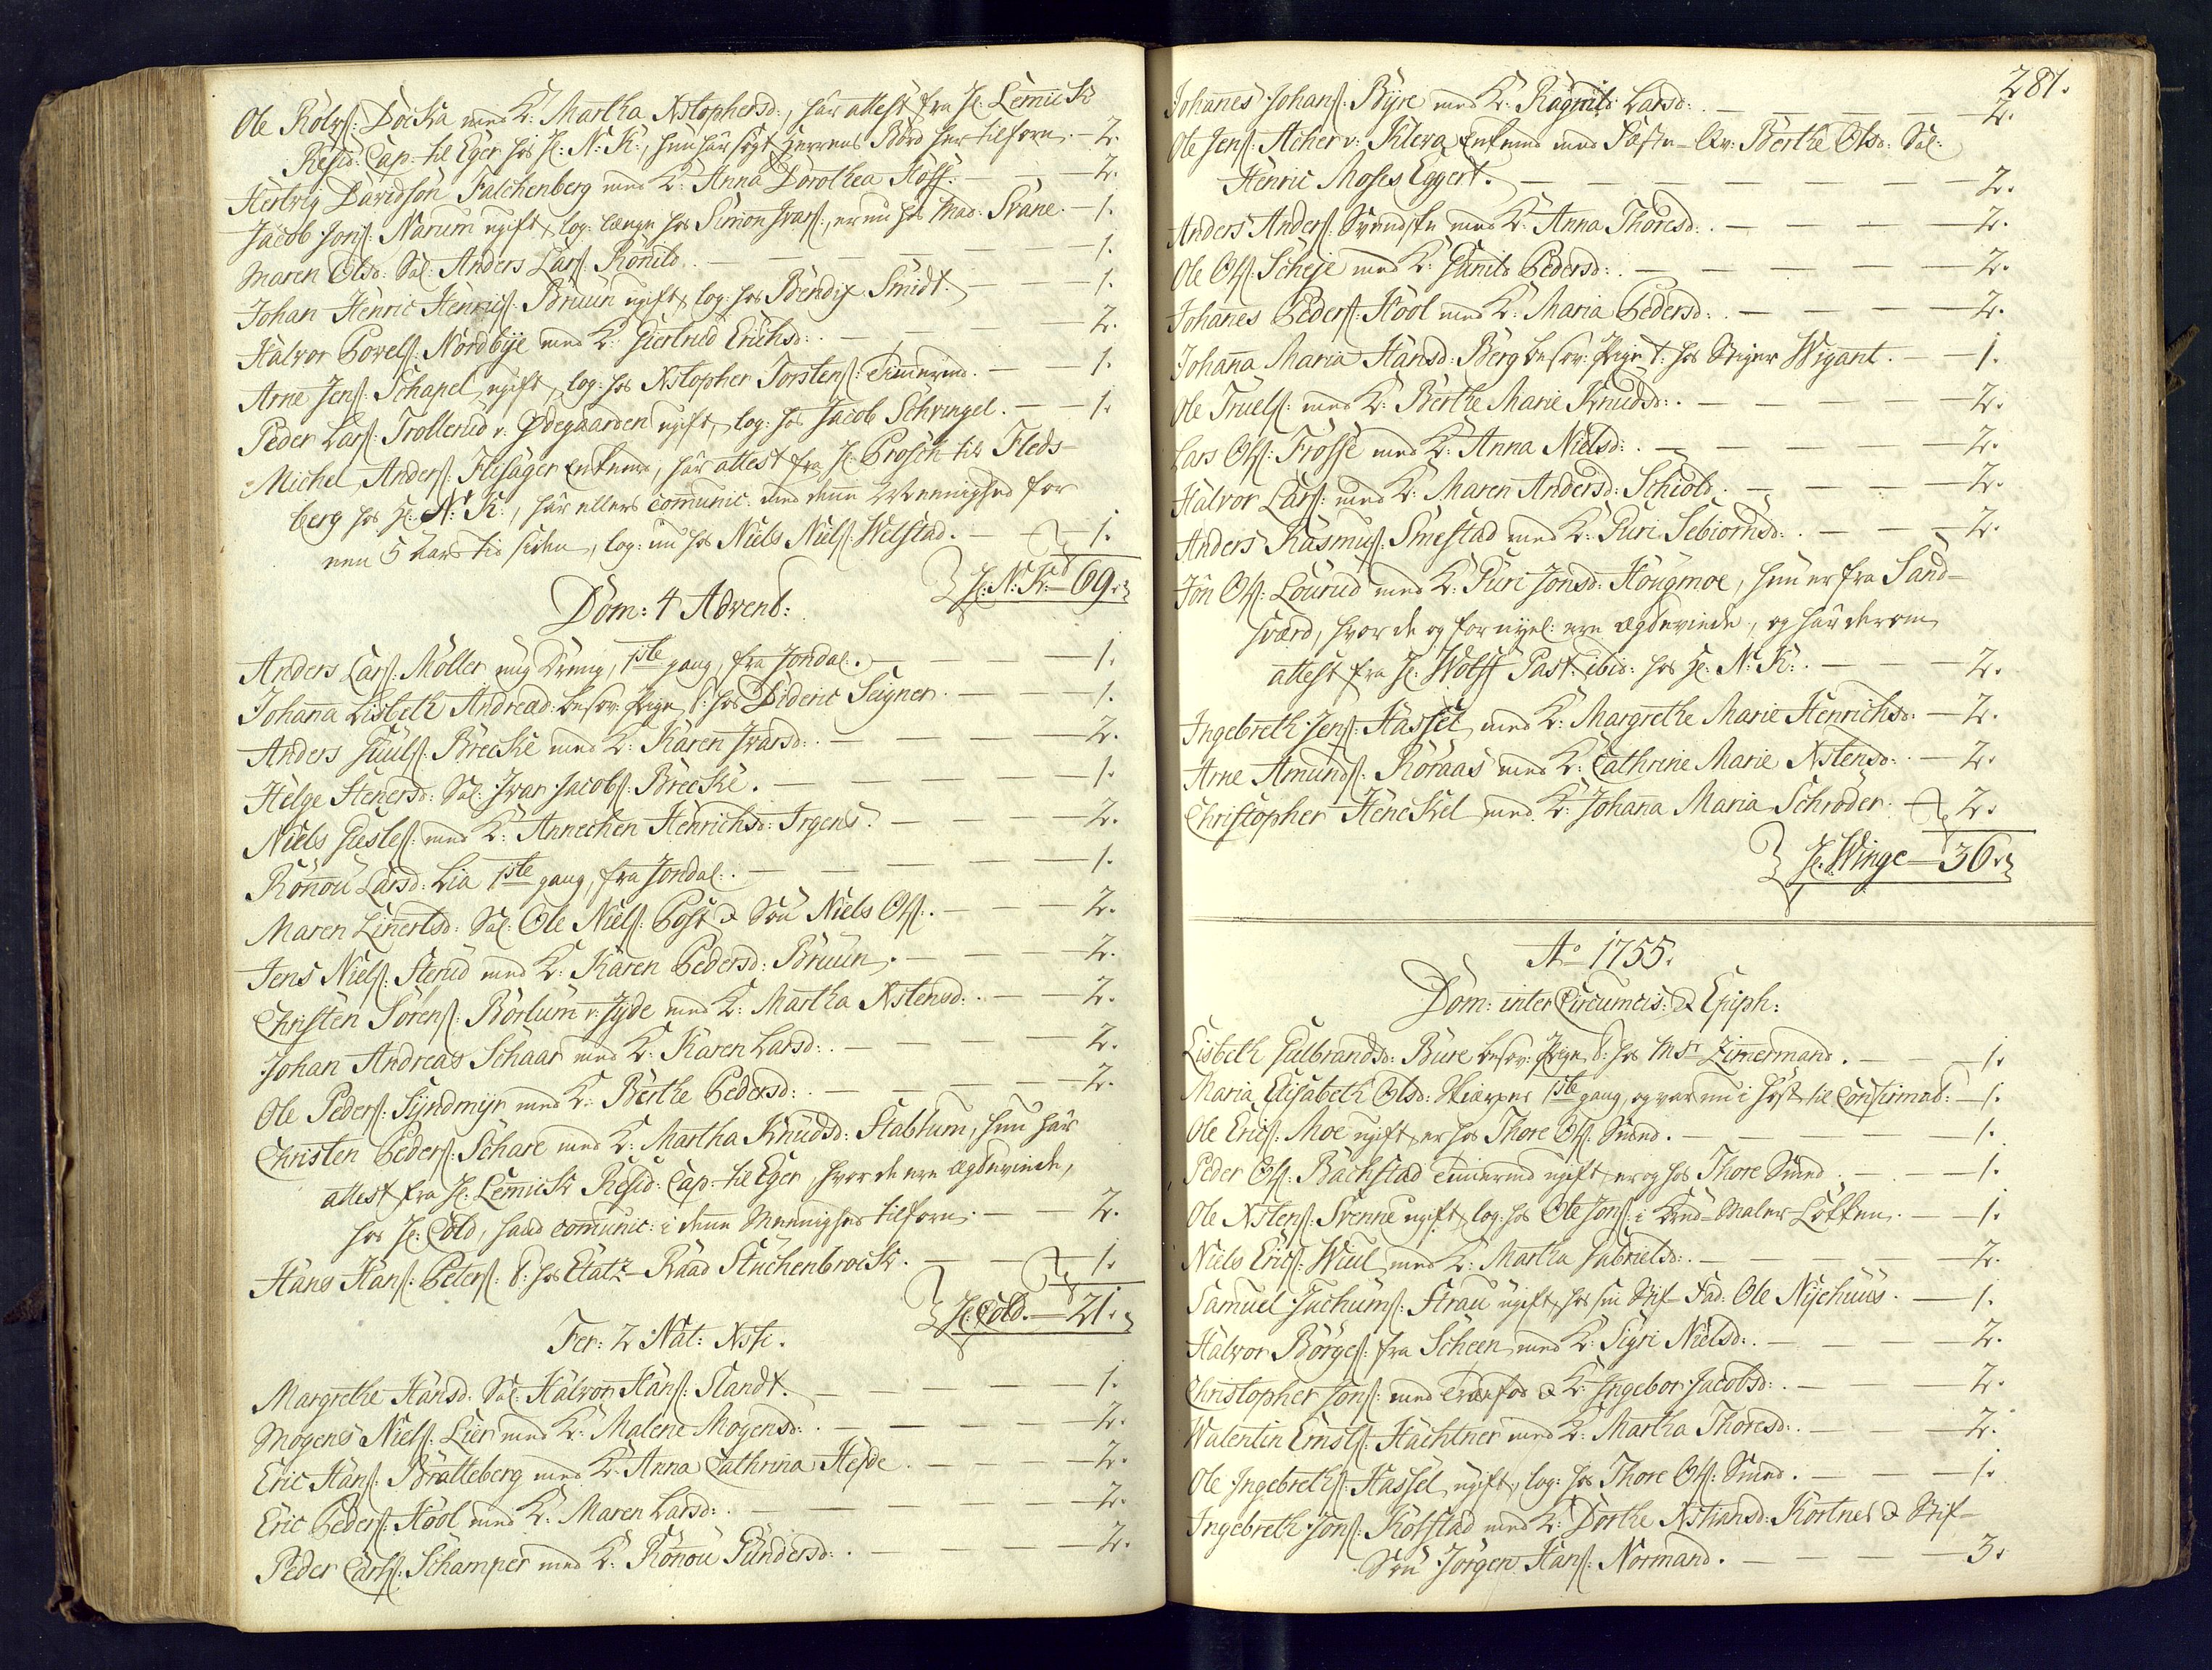 Ole Rolfs: Docka med K: Martha Xstophersd:, har attest fra H: Lemick
Resid: Cap: til Eger hos H: N: K:, hun har søgt Herrens Bord her tilforn. — 2.
Hertvig Davidson Falchenberg med K: Anna Dorothea Hoff. — 2.
Jacob Jons: Narum ugift, log: længe hos Simon Ivars:, er nu hos Mad: Svane. — 1.
Maren Olsd: Sal: Anders Lars: Ronild. — 1.
Johan Henric Henrics: Bruun ugift, log: hos Bendix Smidt. — 1.
Halvor Povels: Nordbye med K: Giertrud Erichsd: — 2.
Arne Jens: Schapel ugift, log: hos Xstopher Torstens: Timmermd. — 1.
Peder Lars: Trollerud v: Ødegaarden ugift, log: hos Jacob Schringel. — 1.
Michel Anders: Flisager Enkemd, har attest fra H: Brosch til Fleds-
berg hos H: N: K:, har ellers communic: med denne Meenighed for
nen 5 Aars tid siden, log: nu hos Niels Niels: Welstad. — 1.
H: N: K: — 69.
Dom: 4 Advend:
Anders Lars: Moller ung Dreng, 1ste gang, fra Jondal. — 1.
Johana Lisbeth Andread: besov: Pige t: hos Dideric Seigner. — 1.
Anders Juuls: Brecke med K: Karen Ivarsd: — 2.
Helge Stenersd: Sal: Ivar Jacobs: Brecke. — 1.
Niels Giesles: med K: Annechen Henrichsd: Irgens. — 2.
Rönou Larsd: Lia 1ste gang, fra Jondal: — 1.
Maren Linertsd: Sal: Ole Niels: Post & Søn Niels Ols: — 2.
Jens Niels: Sterud med K: Karen Pedersd: Bruun. — 2.
Christen Sörens: Börlum v: Jyde med K: Martha Xstensd: — 2.
Johan Andreas Schaar med K: Karen Larsd: — 2.
Ole Peders: Syndmyr med K: Berthe Pedersd: — 2.
Christen Peders: Schare med K: Martha Knudsd: Stablum, hun har
attest fra H: Lemick Resid: Cap: til Eger, hvor de ere Ægteviede,
hos H: Cold, hand comunic: i denne Meenighed tilforn. — 2.
Hans Hans: Peters: t: hos Etatz-Raad Stuchenbrock. — 1.
H: Cold. — 21.
Fer: 2 Nat: Xsti.
Margrethe Hansd: Sal: Halvor Hans: Standt. — 1.
Mogens Niels: Lier med K: Malene Mogensd: — 2.
Eric Hans: Bratteberg med K: Anna Cathrina Heyde. — 2.
Eric Peders: Hool med K: Maren Larsd: — 2.
Peder Carls: Schamper med K: Rönou Gundersd: — 2.
281.
Johanes Johans: Byre med K: Ragnild Larsd: — 2.
Ole Jens: Acher v: Kleva Enkemd med Fæste-Qv: Berthe Olsd: Sal:
Henric Moses Eggert. — 2.
Anders Anders: Svendske med K: Anna Thoresd: — 2.
Ole Ols: Scheje med K: Gunild Pedersd: — 2.
Johanes Peders: Hool med K: Maria Pedersd: — 2.
Johana Maria Hansd: Berg besov: Pige t: hos Stiger Wigant. — 1.
Ole Truels: med K: Berthe Marie Knudsd: — 2.
Lars Ols: Frosse med K: Anna Nielsd: — 2.
Halvor Lars: med K: Maren Andersd: Schiold. — 2.
Anders Rasmus: Smestad med K: Guri Sebiornsd: — 2.
Jon Ols: Lourud med K: Guri Jonsd: Hougmoe, hun er fra Sand-
sværd, hvor de og for nyel: ere Ægteviede, og har derom
attest fra H: Wolff Past: ibid: hos H: N: K: — 2.
Ingebreth Jens: Hassel med K: Margrethe Marie Henrichsd: — 2.
Arne Amunds: Roraas med K: Cathrine Marie Xstensd: — 2.
Christopher Heneckel med K: Johana Maria Schroder. — 2.
H: Winge — 36.
Ao 1755.
Dom: inter Circumcis: & Epiph:
Lisbeth Gulbrandsd: Bure besov: Pige t: hos Msr Zimermand. — 1.
Maria Elisabeth Olsd: Skiærpen 1ste gang, og var nu i Høst til Confirmat: — 1.
Ole Erics: Moe ugift er hos Thore Ols: Smed. — 1.
Peder Ols: Backstad Timermd ugift, er og hos Thore Smed. — 1.
Ole Xstens: Svenne ugift, log: hos Ole Jons: i Brod-Maler Løkken. — 1.
Niels Erics: Wiul med K: Martha Gabrielsd: — 2.
Samuel Juchums: Strau ugift, hos sin Stif-Fad: Ole Nyehuus. — 1.
Halvor Börges: fra Scheen med K: Sigri Nielsd: — 2.
Christopher Jons: med Træefod & K: Ingebor Jacobsd: — 2.
Walentin Ernsts: Hachtner med K: Martha Thoresd: — 2.
Ole Ingebreths: Hassel ugift, log: hos Thore Ols: Smed. — 1.
Ingebreth Jons: Kolstad med K: Dorthe Xstiansd: Kortnes & Stif-
Søn Jörgen Hans: Normand. — 3.